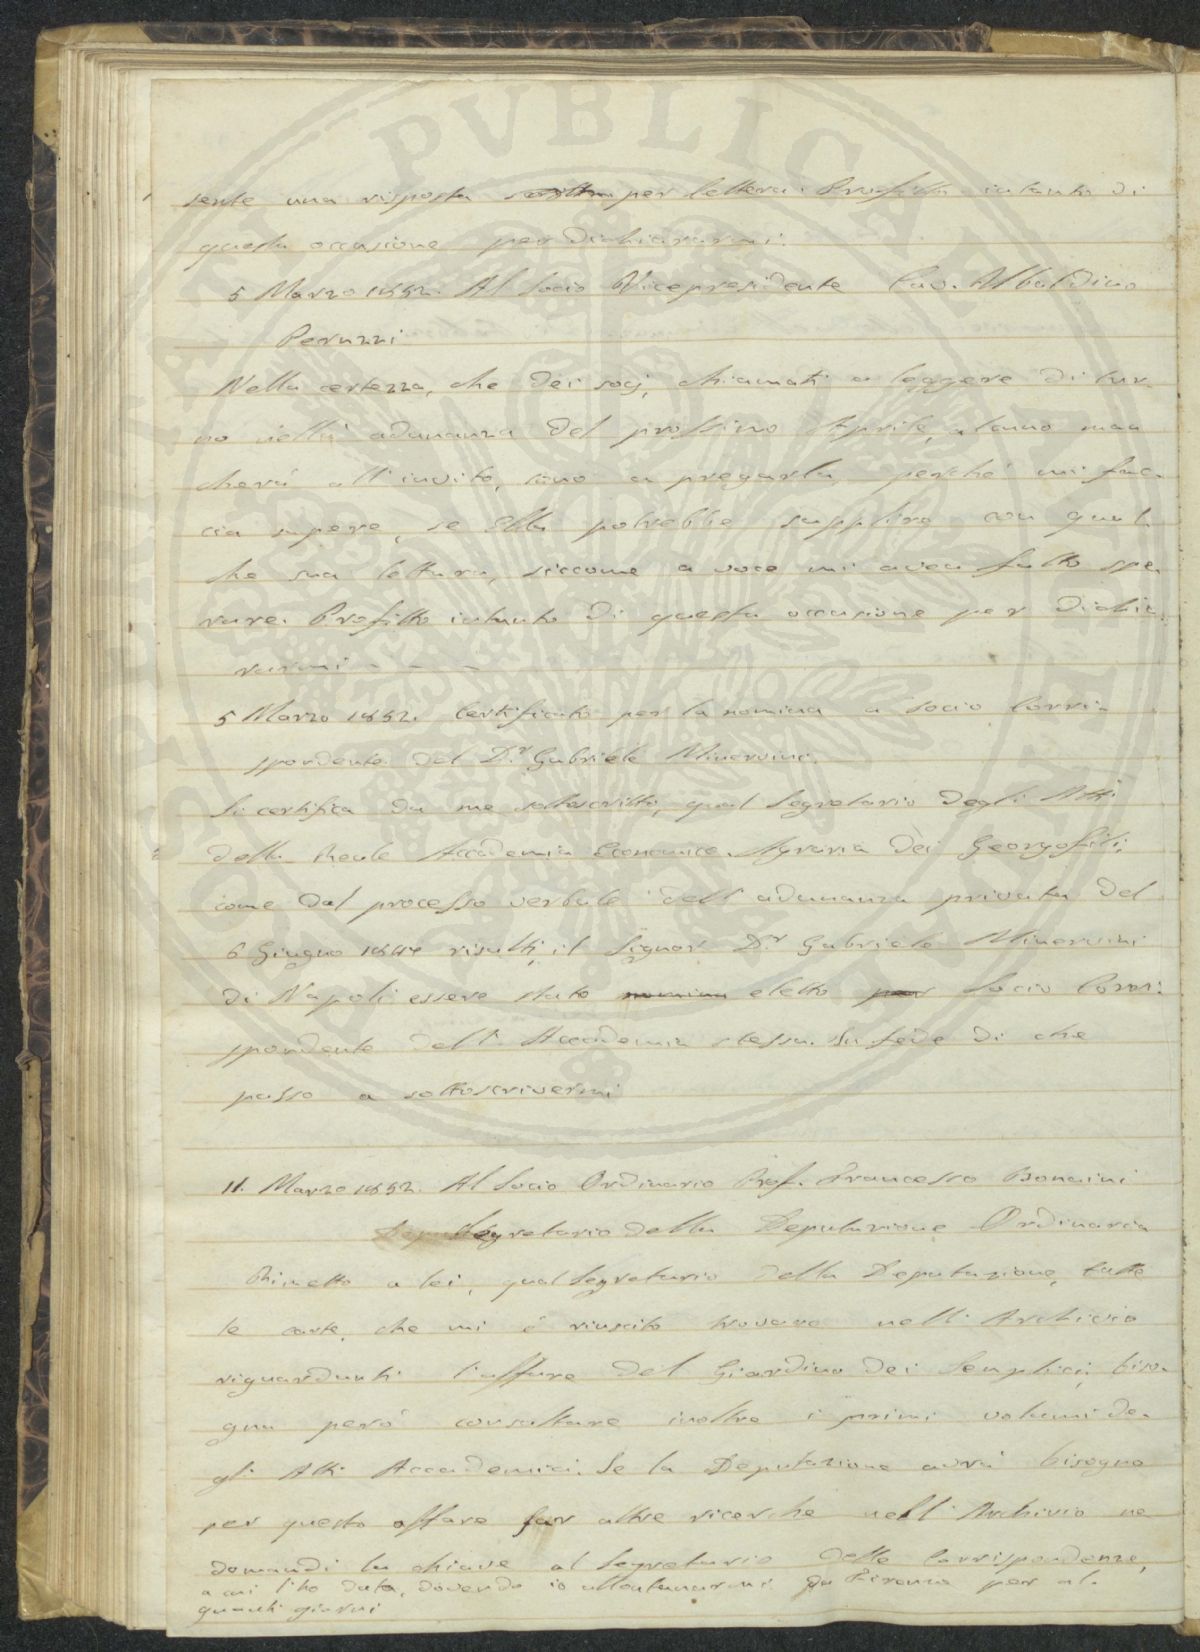 sente una risposta scritta per lettera. Profitto intanto di
questa occasione per dichiararmi.
5 Marzo 1852. Al Socio Vicepresidente Cav. Ubaldino
Peruzzi
Nella certezza, che dei socj, chiamati a leggere di tur-
no nell' adunanza del prossimo Aprile, alcuno man
cherà all' invito, sono a pregarla perché mi fac-
cia sapere, se Ella potrebbe supplire con qual
che sua lettura, siccome a voce mi avea fatto spe-
rare. Profitto intanto di questa occasione per dichia
rarmi - - - -
5 Marzo 1852. Certificato per la nomina a Socio Corri-
spondente del D.r Gabriele Minervini.
Si certifica da me sottoscritto, qual Segretario degli Atti
della Reale Accademia Economico-Agraria dei Georgofili,
come dal processo verbale dell' adunanza privata del
6 Giugno risulti, il Signor D.r Gabriele Minervini
di Napoli essere stato eletto Socio Corri-
spondente dell' Accademia stessa. In fede di che
passo a sottoscrivermi
11. Marzo 1852. Al Socio Ordinario Prof. Francesco Bonaini
Segretario della Deputazione Ordinaria
Rimetto a lei, qual Segretario della Deputazione, tutte
le carte, che mi è riuscito trovare nell' Archivio
riguardanti l'affare del Giardino dei Semplici; biso-
gna però consultare inoltre i primi volumi de-
gli Atti Accademici. Se la Deputazione avrà bisogno
per questo affare far altre ricerche nell' Archivio ne
domandi la chiave al Segretario delle Corrispondenze,
a cui l'ho data, dovendo io allontanarmi da Firenze per al-
quanti giorni